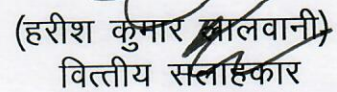 (हरीश कुमार लालवानी)
वित्तीय सलाहकार